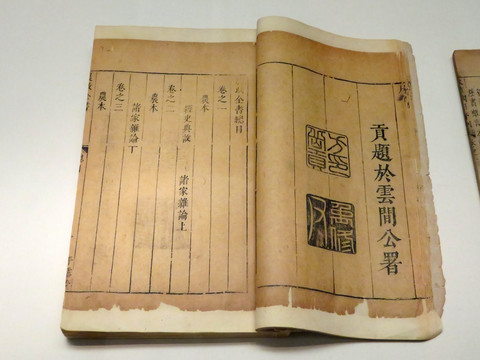 貢題於雲間公署
政全書總目
卷之一
農本
經史典故 諸家雜論上
卷之二
農本
諸家雜論下
卷之三
農本